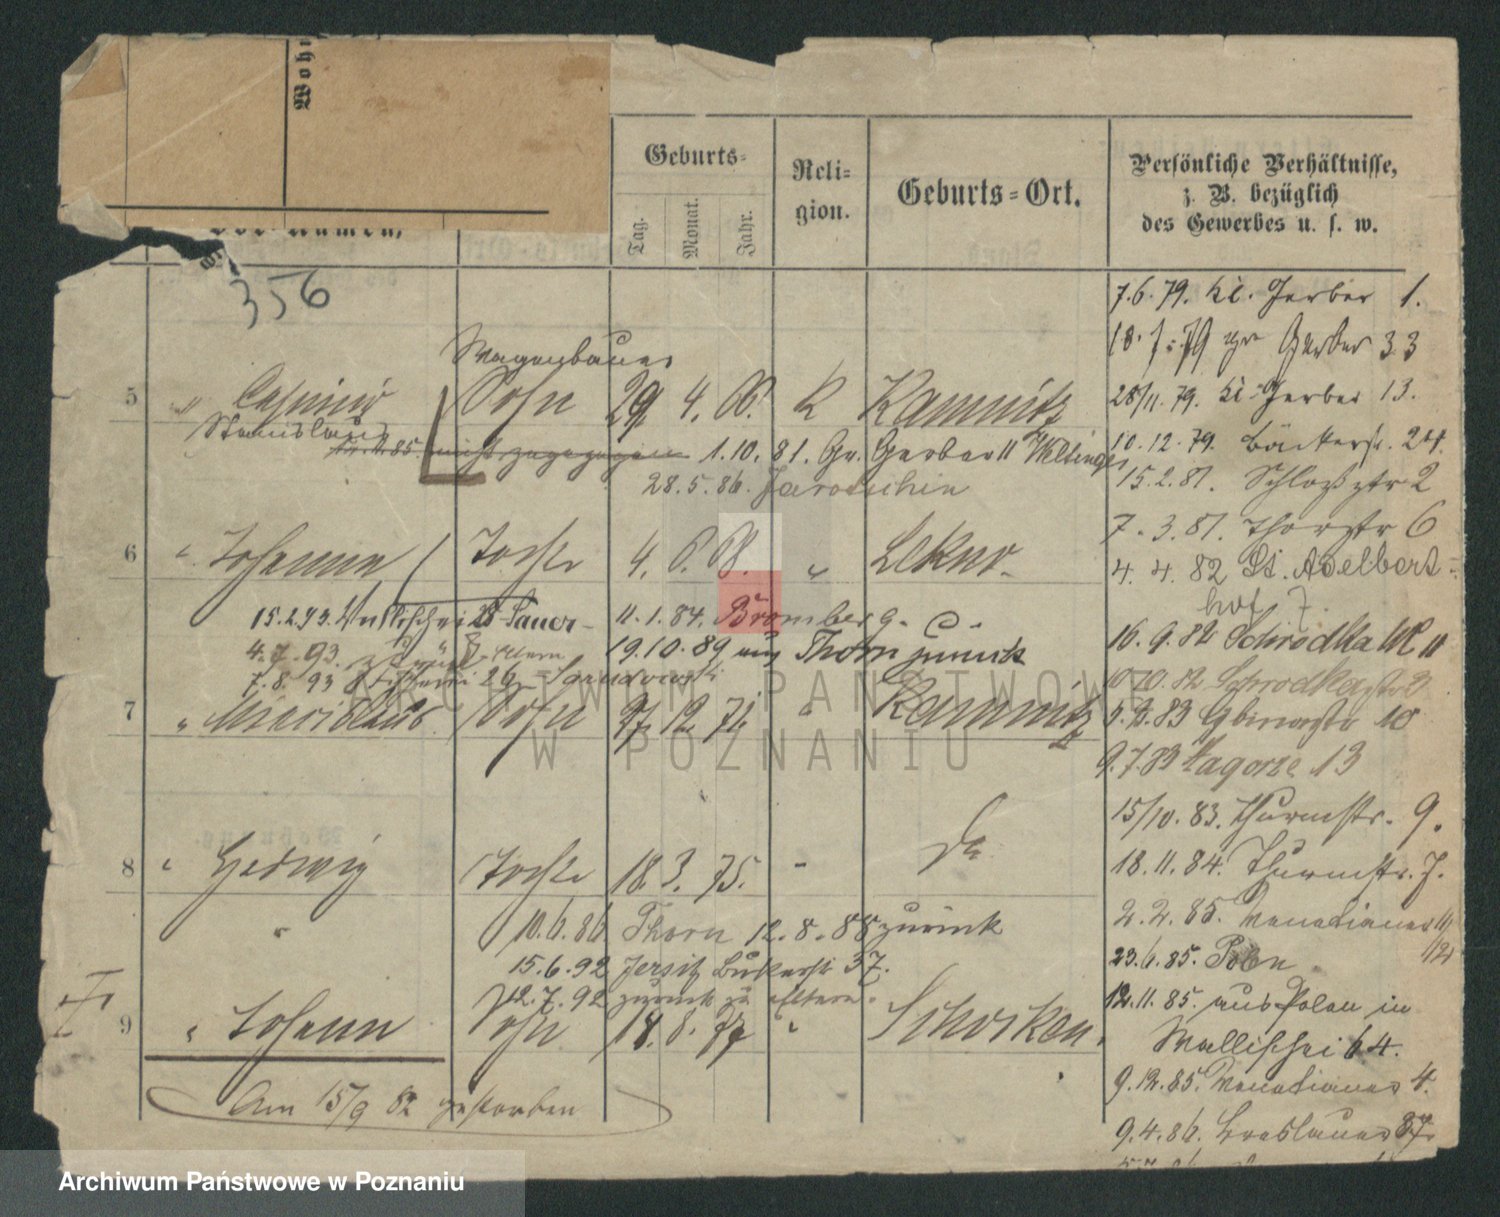 Wohn
Geburts-
Reli-
gion.
Geburts-Ort.
Persönliche Verhältnisse,
z. B. bezüglich
des Gewerbes u. s. w.
Vor-Namen,
Tag.
Monat.
Jahr.
356
7.6.79. Kl. Gerber 1.
18. 7. 79 gr Gerber 33
Wagenbauer
5 " Casimir Sohn 29. 4. 66. K Kamnitz
28/11. 79. Kl. Gerber 13.
Stanislaus
10.12.79. Bäckerstr. 24.
nicht zugezogen 1.10.81. Gr. Gerber 11
15.2.81. Schloßstr 2
28.5.86. Jarotschin
7.3.81. Thorstr 6
6 " Johanna Tochter 4. 6. 68. " Lekno
4. 4. 82 St. Adelbert-
hof 7.
15.2.93. Wallischei 28 11.1.84. Bromberg.
16.9.82 Schrodka 11
4.7.93. zurück z. Eltern 19.10.89 aus Thorn zurück
10.10.82 Schrodkastr 3
7.8.93
7 " Miecislaus Sohn 27. 12. 71. " Kamnitz
83 10
9.7.83 Zagorze 13
15/10. 83. Thurmstr. 9.
8 " Hedwig Tochter 18. 3. 75. " Do
18.11.84. Thurmstr. 7.
"
10.6.86 Thorn 12.8.88 zurück
2.2.85. Venetianer
15.6.92 Jersitz 37.
23.6.85. Polen
12.7.92 zurück zu Eltern.
12.11.85. aus Polen in
9 " Johann Sohn 18. 8. 77 "
Wallischei 64.
9.12.85. Venetianer 4.
Am 15/9 82 gestorben
9.4.86. Breslauer 37.
ARCHIWUM PAŃSTWOWE
W POZNANIU
Archiwum Państwowe w Poznaniu